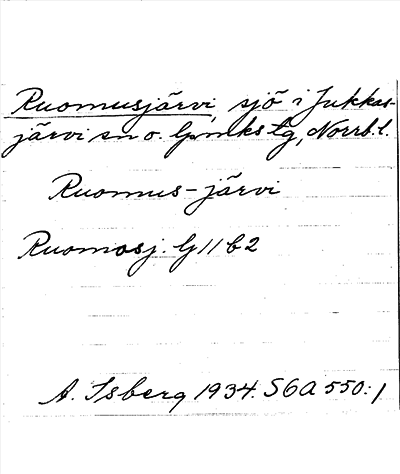 Ruomusjärvi, sjö i Jukkas-
järvi sn o. lpmkstg, Norrb.l.
Ruomus-järvi
Ruomosj. G 11 b 2
A. Isberg 1934. SGA 550:1